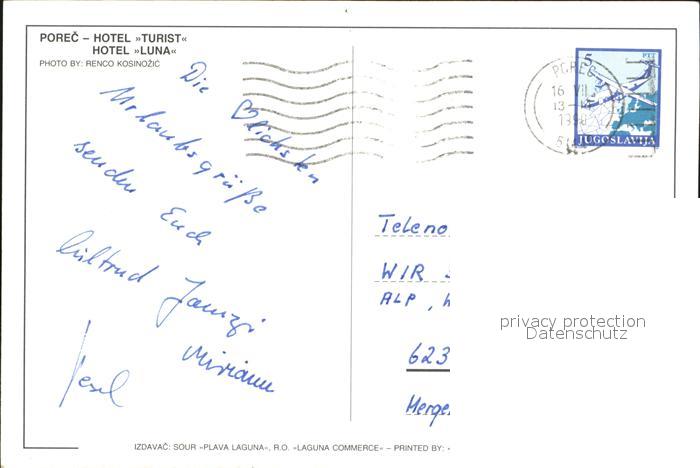 POREČ – HOTEL »TURIST«
HOTEL »LUNA«
PHOTO BY: RENCO KOSINOŽIĆ
Die
♡lichsten
Urlaubsgrüße
senden Euch
Miriam
POREČ
16 VII
13
5
PTT
JUGOSLAVIJA
Teleno
WIR
ALP,
623
Merge
privacy protection
Datenschutz
IZDAVAČ: SOUR »PLAVA LAGUNA«, R.O. »LAGUNA COMMERCE« – PRINTED BY: